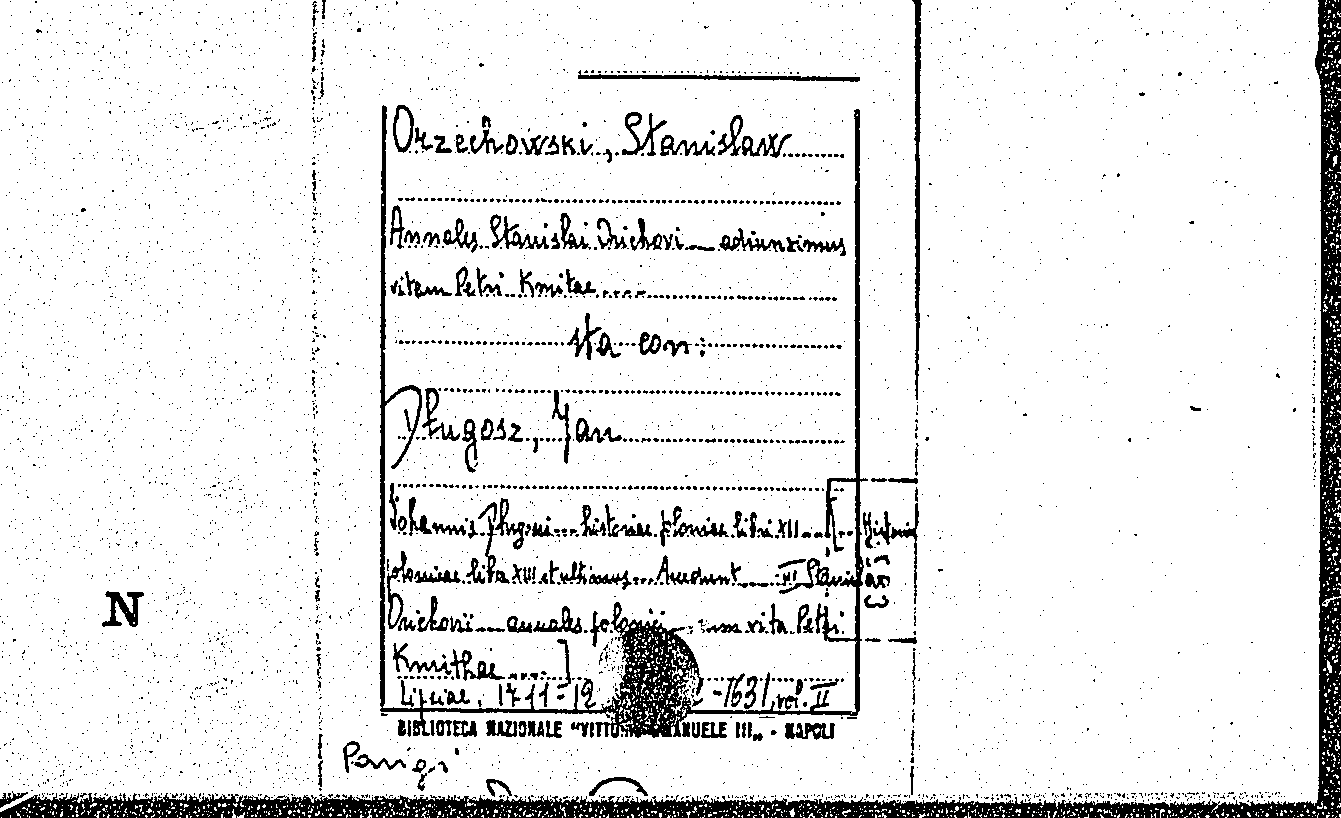 Orzechowski, Stanisław
Annales Stanislai Orichovi... adiunximus
vitam Petri Kmitae....
sta con:
Długosz, Jan
Johannis Dlugossi... historiae polonicae libri XII... [...
polonicae liber XIII et ultimus... Accedunt.... III Stanislai
Orichovii... annales polonici... vita Petri
Kmithae....]
Lipsiae, 1711-12 -1631, vol. II
BIBLIOTECA NAZIONALE "VITTORIO EMANUELE III„ - NAPOLI
Parigi
N